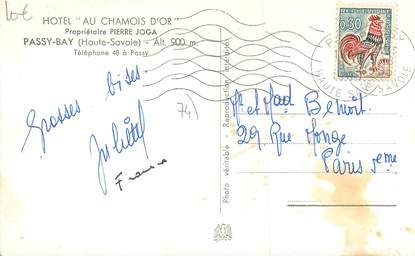 10€
HOTEL "AU CHAMOIS D'OR"
Propriétaire PIERRE JOGA
PASSY-BAY (Haute-Savoie) - Alt. 900 m.
Téléphone 48 à Passy
74)
Grosses bises.
Juliette
France
Photo véritable - Reproduction interdite
0,30
HAUTE SAVOIE
Mr et Mad Benoît
29, Rue Monge
Paris 5eme